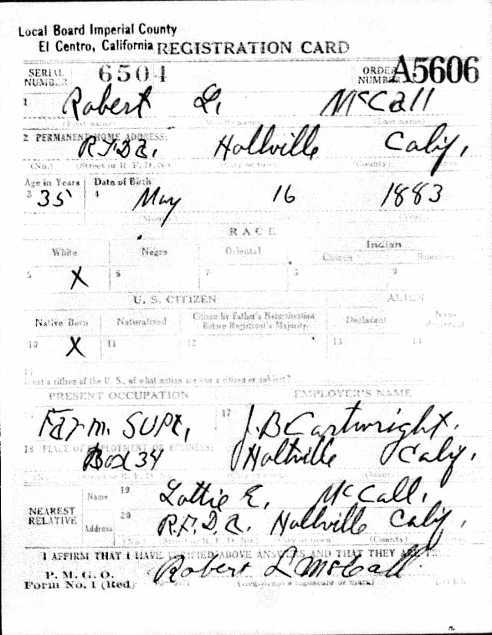 Local Board Imperial County
El Centro, California REGISTRATION CARD
SERIAL NUMBER 6504 ORDER NUMBER A5606
1 Robert L. McCall
2 PERMANENT HOME ADDRESS:
R.F.D.a, Holtville Calif,
(No.) (Street or R. F. D. No.) (County)
Age in Years Date of Birth
3 35 4 May 16 1883
RACE
White Negro Oriental Indian
Citizen
5 X 6 7 8 9
U. S. CITIZEN ALIEN
Native Born Naturalized Citizen by Father's Naturalization Before Registrant's Majority. Declarant
10 X 11 12 13 14
If not a citizen of the U. S., of what nation are you a citizen or subject?
PRESENT OCCUPATION EMPLOYER'S NAME
Farm. SUPt, 17 J.B Cartwright.
18 PLACE OF EMPLOYMENT OR BUSINESS:
Box 34 Holtville Calif,
NEAREST RELATIVE Name 19 Lottie E, McCall,
Address 20 R.F.D.a. Holtville Calif,
I AFFIRM THAT I HAVE VERIFIED ABOVE ANSWERS AND THAT THEY ARE
P. M. G. O.
Form No. 1 (Red) Robert L McCall